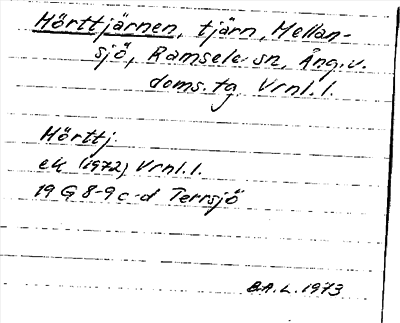 Hörttjärnen, tjärn, Mellan-
sjö, Ramsele sn, Ång. v.
doms. tg Vrnl. l.
Hörttj.
ek (1972) Vrnl. l.
19 G 8-9 c-d Terrsjö
B.A.L. 1973